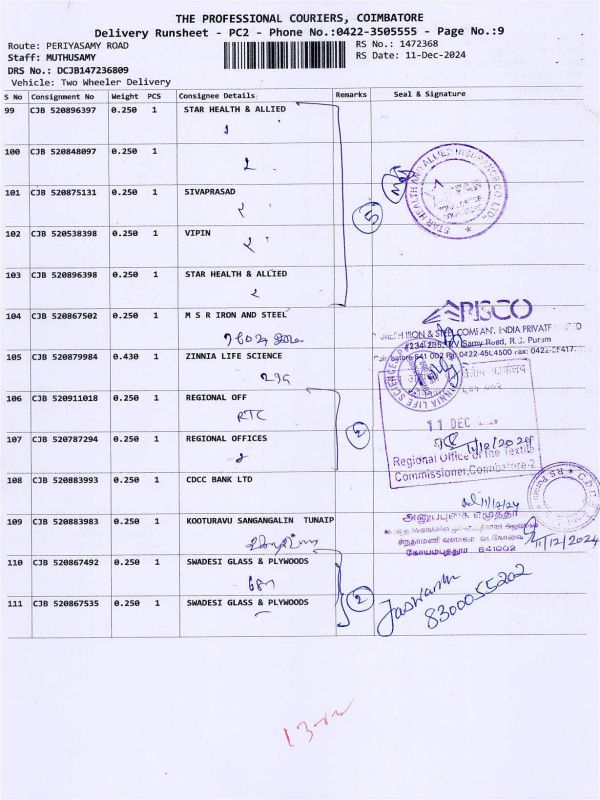 THE PROFESSIONAL COURIERS, COIMBATORE
Delivery Runsheet - PC2 - Phone No.:0422-3505555 - Page No.:9
Route: PERIYASAMY ROAD RS No.: 1472368
Staff: MUTHUSAMY RS Date: 11-Dec-2024
DRS No.: DCJB147236809
Vehicle: Two Wheeler Delivery
S No Consignment No Weight PCS Consignee Details Remarks Seal & Signature
99 CJB 520896397 0.250 1 STAR HEALTH & ALLIED
1
100 CJB 520848097 0.250 1
2
101 CJB 520875131 0.250 1 SIVAPRASAD
5
STAR HEALTH AND ALLIED INSURANCE CO. LTD.
102 CJB 520538398 0.250 1 VIPIN
103 CJB 520896398 0.250 1 STAR HEALTH & ALLIED
104 CJB 520867502 0.250 1 M S R IRON AND STEEL
IRON & STEEL COMPANY INDIA PRIVATE LIMITED
Samy Road, R.S. Puram
105 CJB 520879984 0.430 1 ZINNIA LIFE SCIENCE
ZINNIA LIFE SCIENCES
106 CJB 520911018 0.250 1 REGIONAL OFF
RTC
2
11 DEC
107 CJB 520787294 0.250 1 REGIONAL OFFICES
11/12/2024
Regional Office of the Textile
Commissioner, Coimbatore-2
108 CJB 520883993 0.250 1 CDCC BANK LTD
11/12/24
109 CJB 520883983 0.250 1 KOOTURAVU SANGANGALIN TUNAIP
கோயமுத்தூர் 641002
11/12/2024
110 CJB 520867492 0.250 1 SWADESI GLASS & PLYWOODS
2
111 CJB 520867535 0.250 1 SWADESI GLASS & PLYWOODS
8300055202